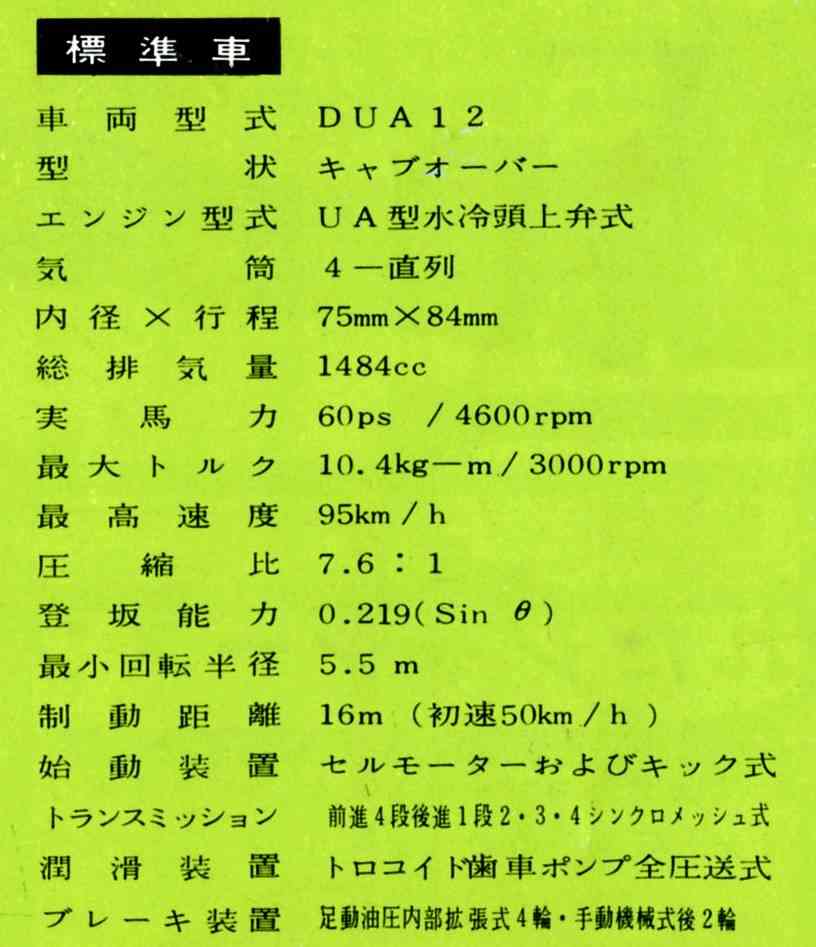 標準車
車両型式 DUA12
型状 キャブオーバー
エンジン型式 UA型水冷頭上弁式
気筒 4―直列
内径×行程 75mm×84mm
総排気量 1484cc
実馬力 60ps /4600rpm
最大トルク 10.4kg―m/3000rpm
最高速度 95km/h
圧縮比 7.6:1
登坂能力 0.219(Sin θ)
最小回転半径 5.5m
制動距離 16m (初速50km/h)
始動装置 セルモーターおよびキック式
トランスミッション 前進4段後進1段2・3・4シンクロメッシュ式
潤滑装置 トロコイド歯車ポンプ全圧送式
ブレーキ装置 足動油圧内部拡張式4輪・手動機械式後2輪